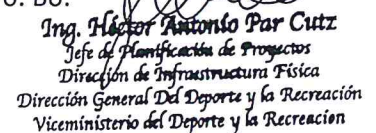 Vo. Bo.
Ing. Héctor Antonio Par Cutz
Jefe de Planificación de Proyectos
Dirección de Infraestructura Física
Dirección General Del Deporte y la Recreación
Viceministerio del Deporte y la Recreación